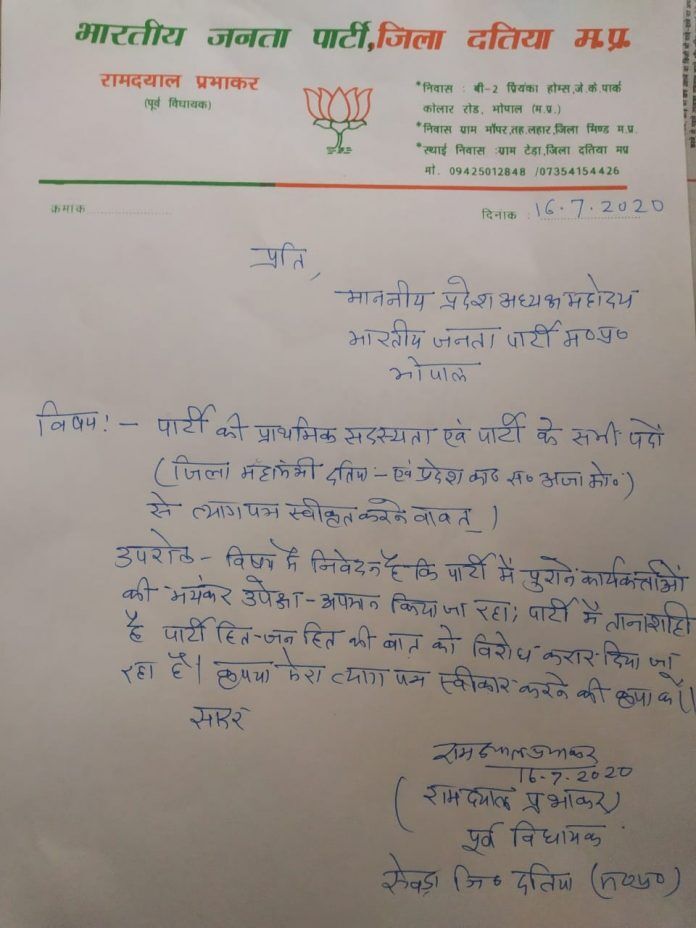 भारतीय जनता पार्टी,जिला दतिया म.प्र.
रामदयाल प्रभाकर
(पूर्व विधायक)
*निवास : बी-2 प्रियंका होम्स,जे.के.पार्क
कोलार रोड, भोपाल (म.प्र.)
*निवास ग्राम मौंपर,तह.लहार,जिला भिण्ड म.प्र.
*स्थाई निवास :ग्राम टेड़ा,जिला दतिया मप्र
मो. 09425012848 /07354154426
क्रमांक
दिनांक : 16.7.2020
प्रति,
माननीय प्रदेश अध्यक्ष महोदय
भारतीय जनता पार्टी म०प्र०
भोपाल
विषय:- पार्टी की प्राथमिक सदस्यता एवं पार्टी के सभी पदों
(जिला महामंत्री दतिया - एवं प्रदेश का० स० अजा मो०)
से त्यागपत्र स्वीकृत करने वावत ।
उपरोक्त - विषय में निवेदन है कि पार्टी में पुराने कार्यकर्ताओं
की भयंकर उपेक्षा - अपमान किया जा रहा; पार्टी में तानाशाही
है पार्टी हित-जन हित की बात को विरोध करार दिया जा
रहा है। कृपया मेरा त्याग पत्र स्वीकार करने की कृपा करें।
सादर
रामदयाल प्रभाकर
16-7-2020
(रामदयाल प्रभाकर)
पूर्व विधायक
सेवढ़ा जि० दतिया (म०प्र०)